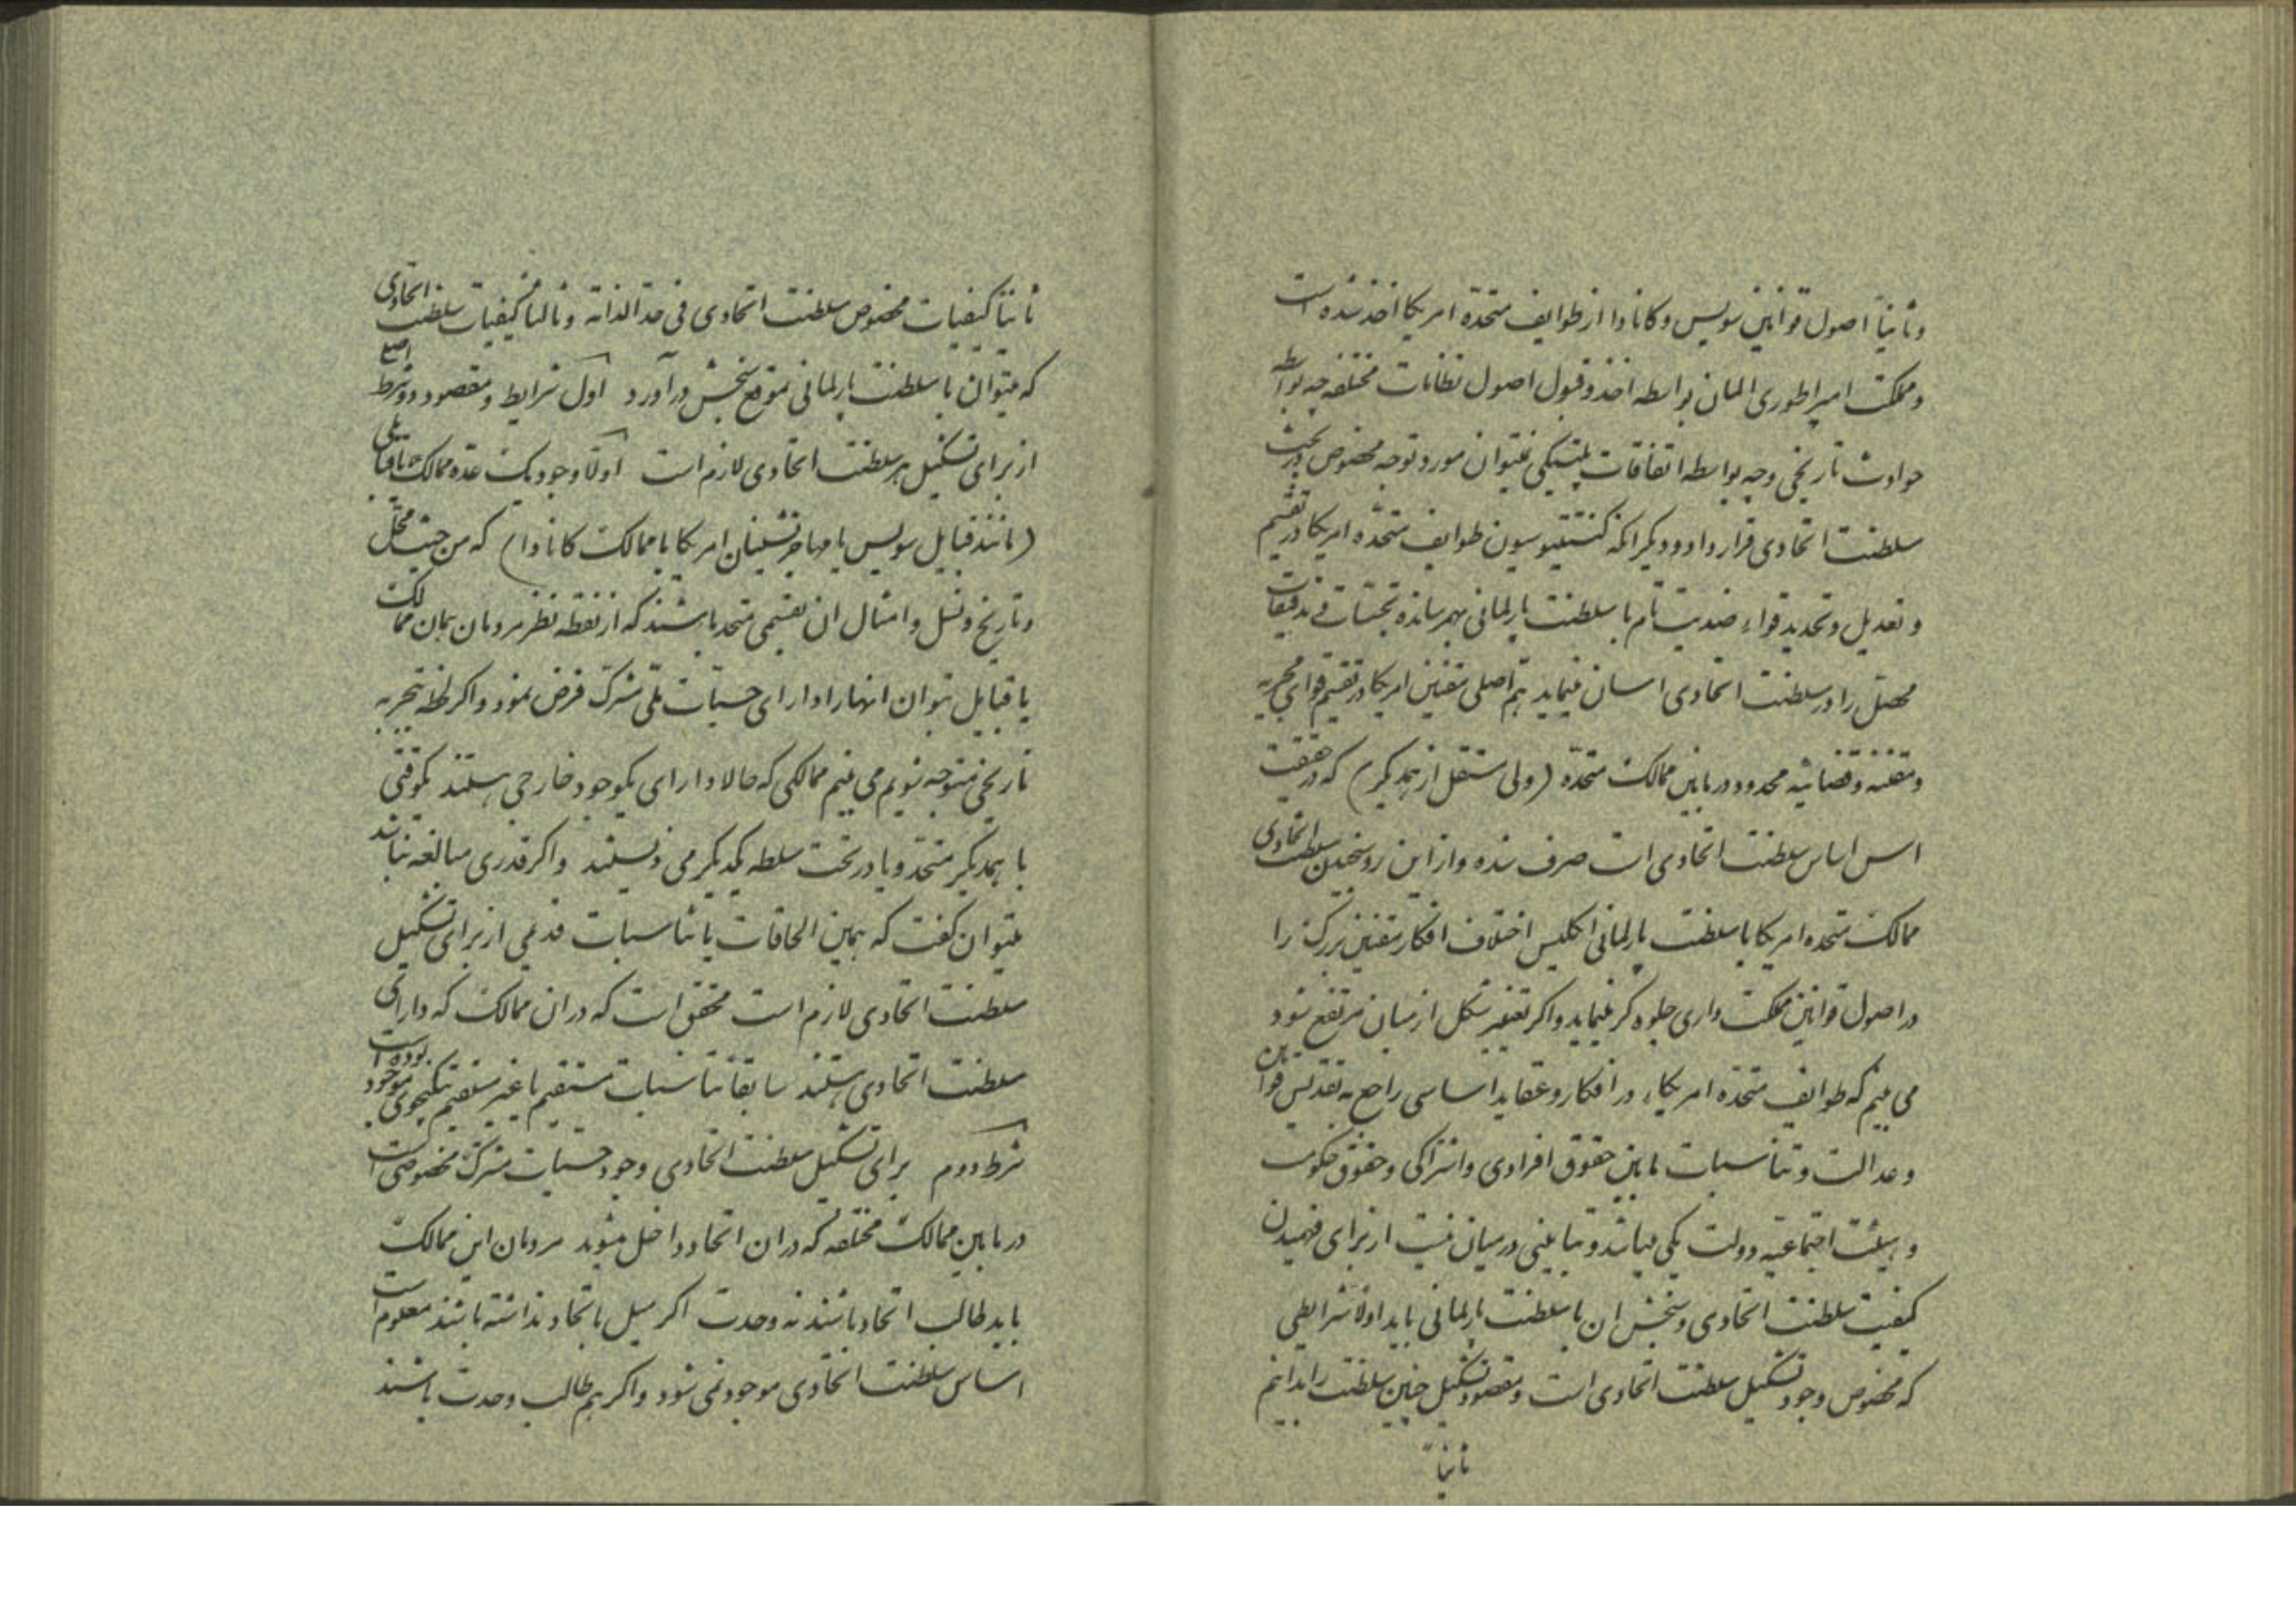 وثانیاً اصول قوانین سویس و کانادا از طوایف متحدهٔ امریکا اخذ شده است
و مملکت امپراطوری المان بواسطه اخذ و قبول اصول نظامات مختلفه چه بواسطه
حوادث تاریخی و چه بواسطه اتفاقات پلیتیکی نمیتوان مورد توجه مخصوص در بحث
سلطنت اتحادی قرار داد و دیگر آنکه کنستیتوسیون طوایف متحدهٔ امریکا در تقسیم
و تعدیل و تحدید قواء ضدیت تام با سلطنت پارلمانی بهم رسانده تجسسات تدقیقات
محصل را در سلطنت اتحادی اسان مینماید هم اصلی مقنین امریکا در تقسیم قوای مجریه
و مقننه و قضائیه محدود در مابین ممالک متحده (ولی مستقل از همدیگر) که در حقیقت
اس اساس سلطنت اتحادی است صرف شده و از این رو سنجیدن سلطنت اتحادی
ممالک متحده امریکا با سلطنت پارلمانی انگلیس اختلاف افکار مقنین بزرگ را
در اصول قوانین مملکت داری جلوه گر مینماید و اگر تغییر شکل از میان مرتفع شود
می بینیم که طوایف متحده امریکا، در افکار و عقاید اساسی راجع به تقدیس قوانین
و عدالت و تناسبات مابین حقوق افرادی و اشتراکی و حقوق حکومت
و هیئت اجتماعیه دولت یکی میباشد و تباینی در میان نیست از برای فهمیدن
کیفیت سلطنت اتحادی و سنجش ان با سلطنت پارلمانی باید اولاً شرایطی
که مخصوص وجود تشکیل سلطنت اتحادی است و مقصود تشکیل چنین سلطنت را بدانیم
ثانیاً
ثانیاً کیفیات مخصوص سلطنت اتحادی فی حد الذاته و ثالثاً کیفیات سلطنت اتحادی
که میتوان با سلطنت پارلمانی بموقع سنجش درآورد اول شرایط و مقصود دو شرط اصلی
از برای تشکیل هر سلطنت اتحادی لازم است اولاً وجود یک عده ممالک یا قبایلی
(مانند قبایل سویس یا مهاجر نشینان امریکا یا ممالک کانادا) که من حیث محل
و تاریخ و نسل و امثال ان بقسمی متحد باشند که از نقطه نظر مردمان همان ممالک
یا قبایل بتوان انها را دارای حسیات ملی مشترک فرض نمود و اگر لحظهٔ بتجربه
تاریخی متوجه شویم می بینیم ممالکی که حالا دارای یکوجود خارجی هستند یکوقتی
با همدیگر متحد و یا در تحت سلطه یکدیگر می زیستند و اگر قدری مبالغه نباشد
میتوان گفت که همین الحاقات یا تناسبات قدیمی از برای تشکیل
سلطنت اتحادی لازم است محقق است که در ان ممالک که دارای
سلطنت اتحادی هستند سابقاً تناسبات مستقیم یا غیر مستقیم بیکنحوی موجود بوده است
شرط دوم برای تشکیل سلطنت اتحادی وجود حسیات مشترک مخصوصی است
در مابین ممالک مختلفه که در ان اتحاد داخل میشوند مردمان این ممالک
باید طالب اتحاد باشند نه وحدت اگر میل باتحاد نداشته باشند معلوم است
اساس سلطنت اتحادی موجود نمی شود و اگر هم طالب وحدت باشند